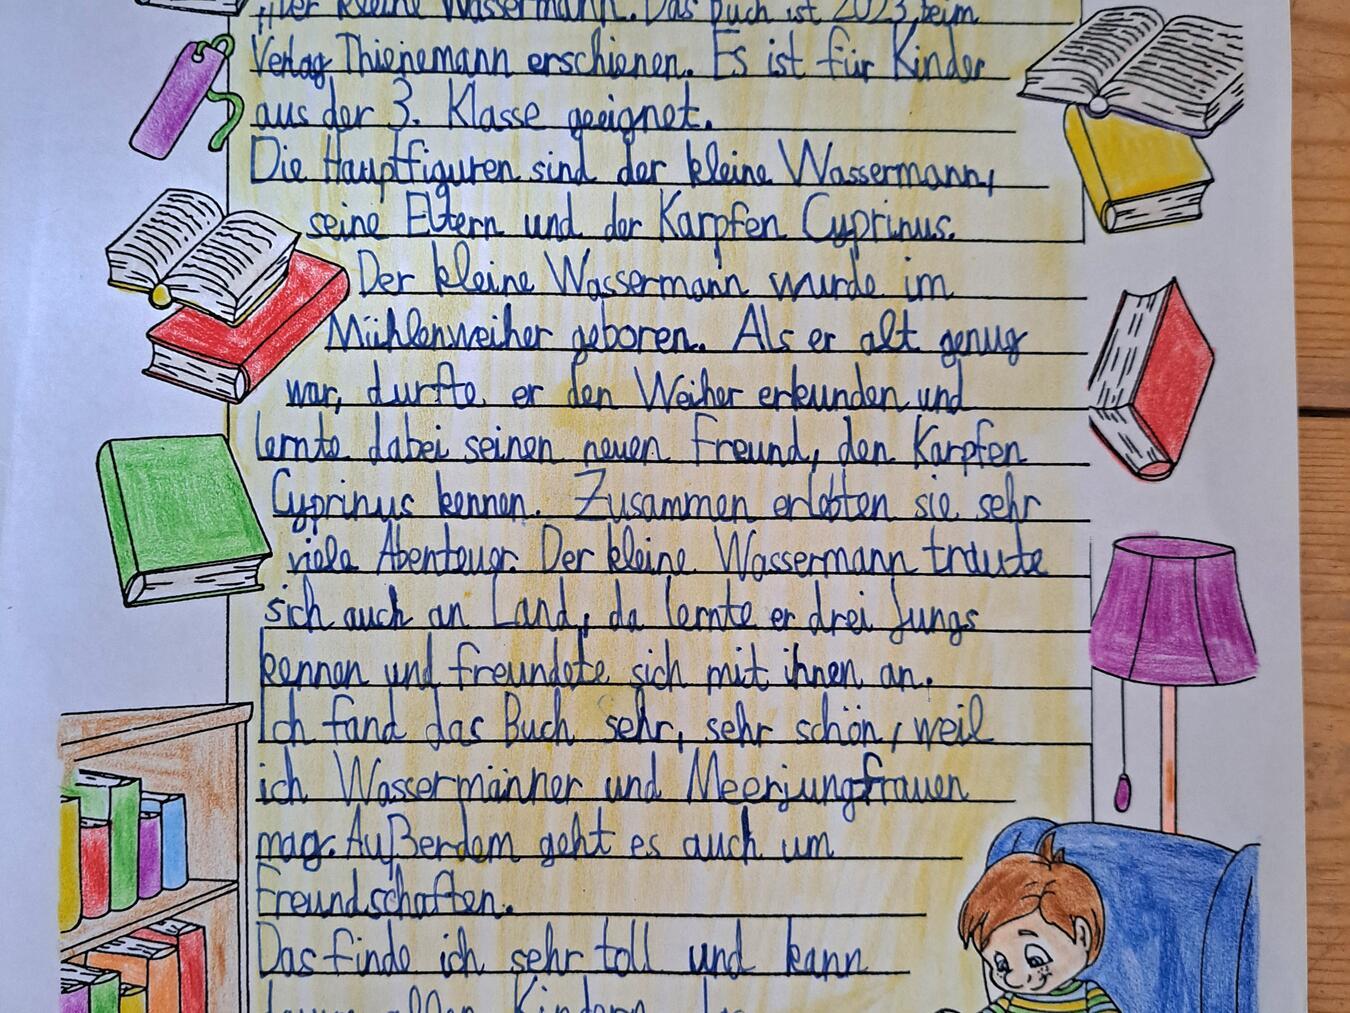 "Der kleine Wassermann. Das Buch ist 2023, beim
Verlag Thienemann erschienen. Es ist für Kinder
aus der 3. Klasse geeignet.
Die Hauptfiguren sind der kleine Wassermann,
seine Eltern und der Karpfen Cyprinus.
Der kleine Wassermann wurde im
Mühlenweiher geboren. Als er alt genug
war, durfte er den Weiher erkunden und
lernte dabei seinen neuen Freund, den Karpfen
Cyprinus kennen. Zusammen erlebten sie sehr
viele Abenteuer. Der kleine Wassermann traute
sich auch an Land, da lernte er drei Jungs
kennen und freundete sich mit ihnen an.
Ich fand das Buch sehr, sehr schön, weil
ich Wassermänner und Meerjungfrauen
mag. Außerdem geht es auch um
Freundschaften.
Das finde ich sehr toll und kann
allen Kindern